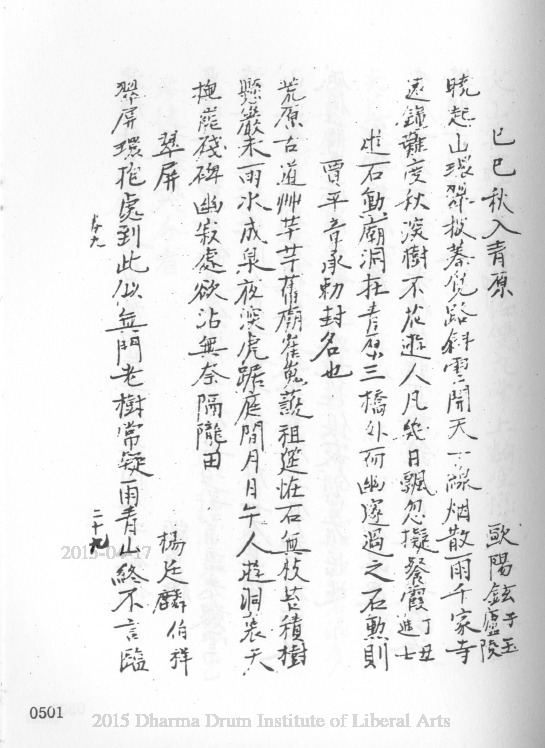 己巳秋入青原 歐陽鉉 子玉廬陵
曉起山環翠披蓁覓路斜雲開天一線烟散雨千家寺
遠鐘難度秋深樹不花遊人凡幾日飄忽擬餐霞 丁丑進士
石勳廟洞在青原三橋外何幽邃過之石勳則
賈平章承勅封名也
荒原古道艸芊芊舊廟嵬祖筵恠石無枝苔積樹
懸巖未雨水成泉夜深虎踞庭間月日午人遊洞裏天
殘碑幽寂處欲沾無奈隔隴田
翠屏 楊廷麟 伯祥
翠屏環抱處到此似無門老樹常疑雨青山終不言臨
卷九 二十九
2015-04-17
0501
2015 Dharma Drum Institute of Liberal Arts